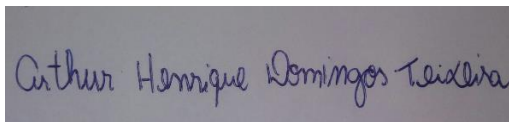 Arthur Henrique Domingos Teixeira